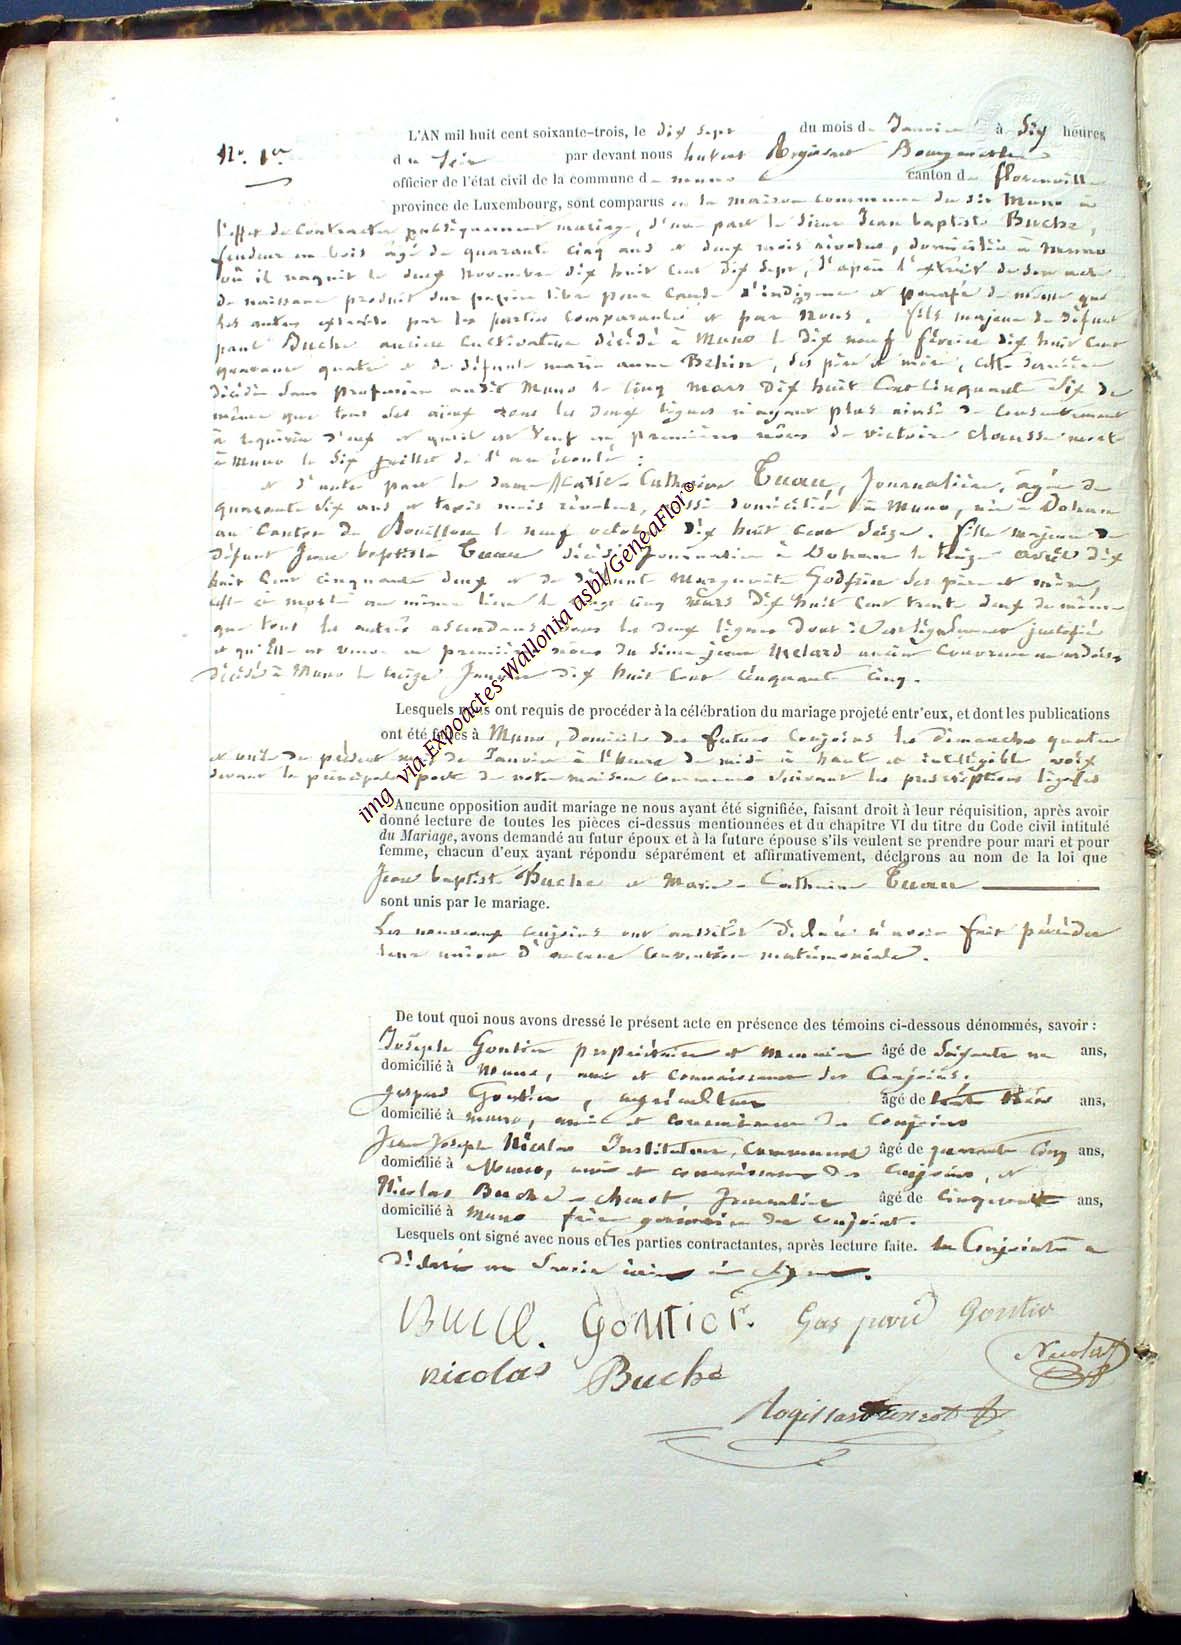 N°. 1er
L'AN mil huit cent soixante-trois, le dix sept du mois de Janvier à Six heures
du Soir par devant nous hubert Bourgmestre
officier de l'état civil de la commune de muno canton de florenville
province de Luxembourg, sont comparus en la maison commune du dit Muno a
l'effet de contracter publiquement mariage, d'une part le Sieur Jean baptiste Buche,
fendeur en bois âgé de quarante cinq ans et deux mois révolus, domicilié à Muno
où il naquit le deux Novembre dix huit cent dix sept, d'après l'extrait de son acte
de naissance produit sur papier libre pour cause d'indigence et de même que
les autres par les parties comparantes et par Nous. fils majeur de défunt
paul Buche ancien Cultivateur décédé à Muno le dix neuf février dix huit cent
quarante quatre et de défunte marie anne ses père et mère, cette dernière
décédée Sans profession audit Muno le cinq mars dix huit Cent Cinquante Six de
même que tous ses aïeux dans les deux lignes n'ayant plus ainsi de consentement
à requérir d'eux et qu'il est Veuf en premières nôces de victoire clausse morte
à Muno le Six juillet de l'an écoulé :
et d'autre part la dame Marie-Catherine Tuau, Journalière, âgée de
quarante Six ans et trois mois révolus, aussi domiciliée à Muno, née à Dohan
au Canton de Bouillon le neuf octobre dix huit cent Seize. fille majeure de
défunt Jean baptiste Tuau décédé Journalier à Dohan le treize avril dix
huit Cent cinquante deux et de défunte Marguerite Godfrin ses père et mère,
celle ci morte au même lieu le cinq mars Dix huit Cent trente deux de même
que tous les autres ascendans dans les deux lignes dont légalement justifié
et qu'Elle est veuve en premières noces du Sieur jean Melard ancien couvreur en ardoises
décédé à Muno le treize Janvier dix huit Cent cinquante Cinq.
Lesquels nous ont requis de procéder à la célébration du mariage projeté entr'eux, et dont les publications
ont été faites à Muno, domicile des futurs Conjoins les dimanches quatre
et onze du présent mois de Janvier à l'heure de midi à haute et intelligible voix
devant la principale porte de notre maison commune suivant les prescriptions légales
Aucune opposition audit mariage ne nous ayant été signifiée, faisant droit à leur réquisition, après avoir
donné lecture de toutes les pièces ci-dessus mentionnées et du chapitre VI du titre du Code civil intitulé
du Mariage, avons demandé au futur époux et à la future épouse s'ils veulent se prendre pour mari et pour
femme, chacun d'eux ayant répondu séparément et affirmativement, déclarons au nom de la loi que
Jean baptiste Buche et Marie-Catherine Tuau
sont unis par le mariage.
Les nouveaux conjoins ont aussitôt déclaré n'avoir fait précéder
leur union d'aucune convention matrimoniale.
De tout quoi nous avons dressé le présent acte en présence des témoins ci-dessous dénommés, savoir :
Joseph Gontier propriétaire et Meunier âgé de Soixante un ans,
domicilié à Muno, ami et connaissance des Conjoins,
gaspard Gontier, agriculteur âgé de trente trois ans,
domicilié à muno, ami et connaissance des conjoins
Jean Joseph Nicolas Instituteur Communal âgé de quarante Cinq ans,
domicilié à Muno, ami et connaissance des conjoins, et
Nicolas Buche Journalier âgé de cinquante ans,
domicilié à Muno frère germain du conjoint.
Lesquels ont signé avec nous et les parties contractantes, après lecture faite. la Conjointe a
déclaré ne Savoir écrire ni Signer.
Buche. Gontier. Gaspard Gontier
Nicolas
nicolas Buche
img via Expoactes-Wallonia asbl/GeneaFlor®